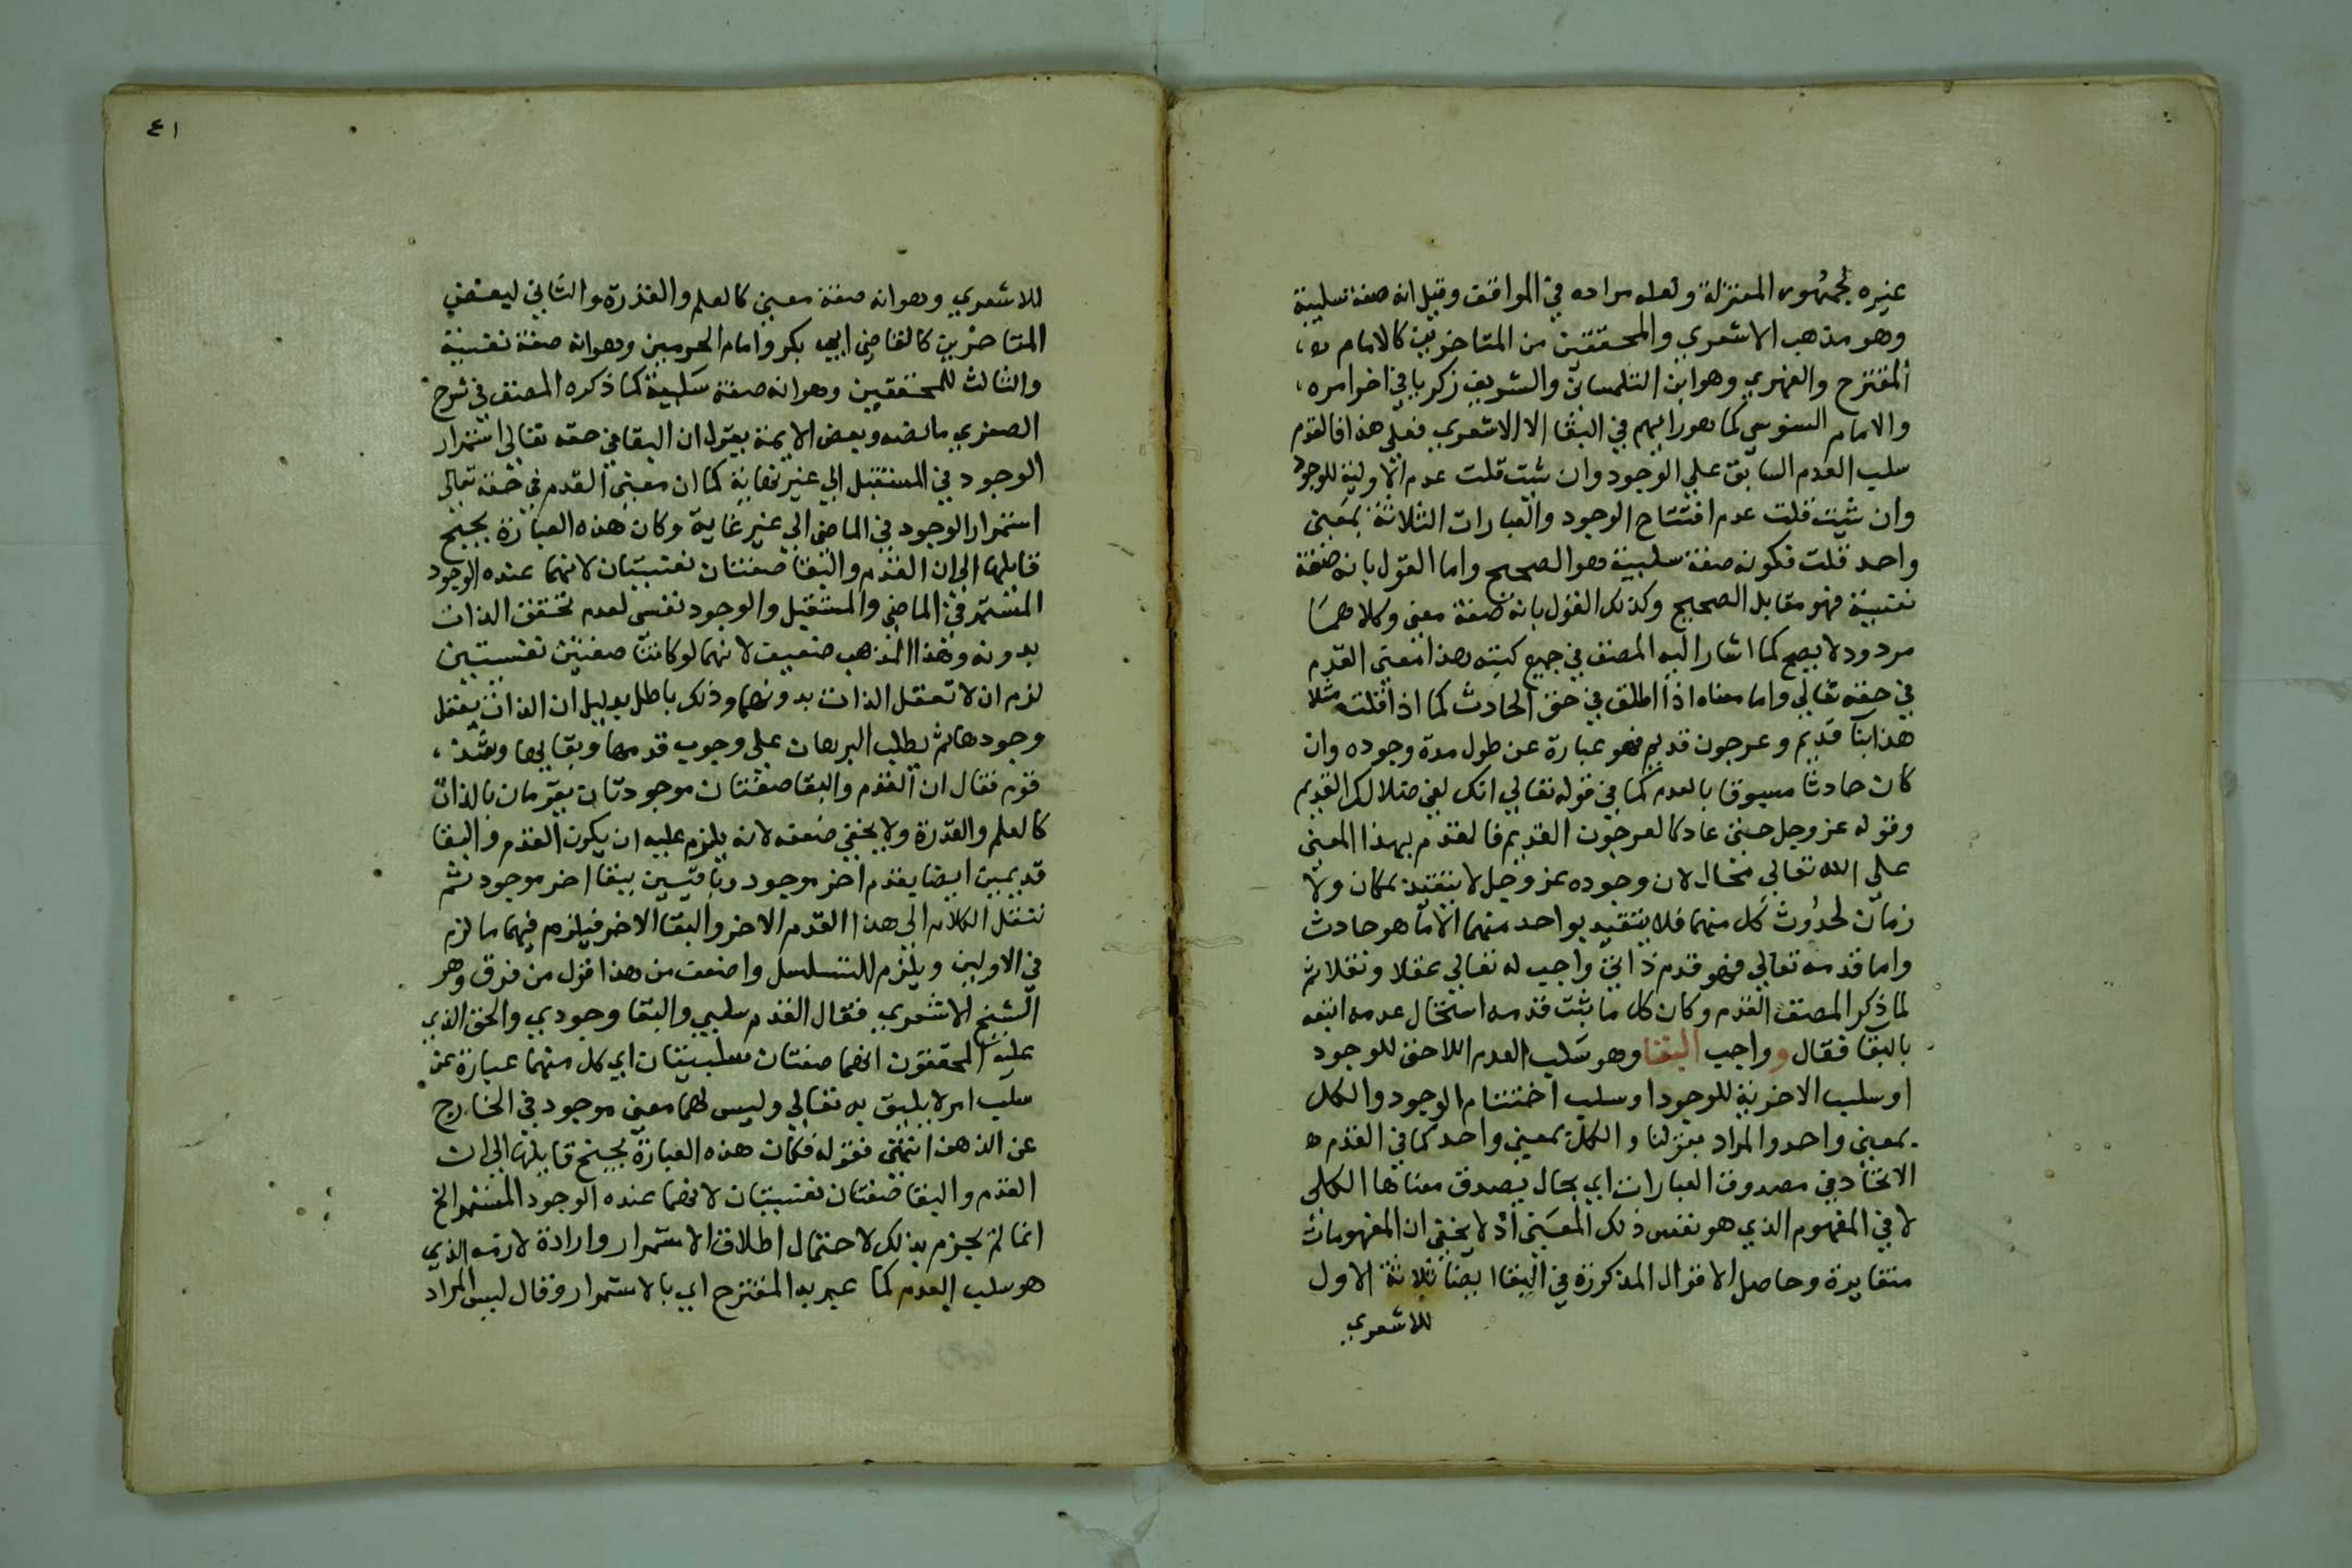 غيره لجمهور المعتزلة ولعله مراده في المواقف وقيل انه صفة سلبية
وهو مذهب الاشعري والمحققين من المتاخرين كالامام
المقترح والفهري وهو ابن التلمساني والشريف زكريا في اخر امره
والامام السنوسي كما هو رائيهم في البقا الا الاشعري فعلي هذا فالقدم
سلب العدم السابق علي الوجود وان شيت قلت عدم الاولية للوجود
وان شيت قلت عدم افتتاح الوجود والعبارات الثلاثة بمعني
واحد قلت فكونه صفة سلبية هو الصحيح واما القول بانه صفة
نفسية فهو مقابل الصحيح وكذلك القول بانه صفة معني وكلاهما
مردود لا يصح كما اشار اليه المصنف في جميع كتبه هذا معني القدم
في حقه تعالي واما معناه اذا اطلق في حق الحادث كما اذا قلت مثلا
هذا بنا قديم وعرجون قديم فهو عبارة عن طول مدة وجوده وان
كان حادثا مسبوقا بالعدم كما في قوله تعالي انك لفي ضلالك القديم
وقوله عز وجل حتي عاد كالعرجون القديم فالقدم بهذا المعني
علي الله تعالي محال لان وجوده عز وجل لا يتقيد بمكان ولا
زمان لحدوث كل منهما فلا يتقيد بواحد منهما الا ما هو حادث
واما قدمه تعالي فهو قدم ذاتي واجب له تعالي عقلا ونقلا ثم
لما ذكر المصنف القدم وكان كل ما ثبت قدمه استحال عدمه اتبعه
بالبقا فقال و واجب البقا وهو سلب العدم اللاحق للوجود
او سلب الاخرية للوجود او سلب اختتام الوجود والكل
بمعني واحد والمراد بقولنا والكل بمعني واحد كما في القدم
الاتحاد في مصدوق العبارات اي بحال يصدق معناها الكلي
لا في المفهوم الذي هو نفس ذلك المعني اذ لا يخفي ان المفهومات
متغايرة وحاصل الاقوال المذكورة في البقا ايضا ثلاثة الاول
للاشعري
٤١
للاشعري وهو انه صفة معني كالعلم والقدرة والثاني لبعض
المتاخرين كالقاضي ابي بكر وامام الحرمين وهو انه صفة نفسية
والثالث للمحققين وهو انه صفة سلبية كما ذكره المصنف في شرح
الصغري ما نصه وبعض الايمة يقول ان البقا في حقه تعالي استمرار
الوجود في المستقبل الي غير نهاية كما ان معني القدم في حقه تعالي
استمرار الوجود في الماضي الي غير غاية وكان هذه العبارة يجنح
قايلها الي ان القدم والبقا صفتان نفسيتان لانهما عنده الوجود
المستمر في الماضي والمستقبل والوجود نفسي لعدم تحقق الذات
بدونه وهذا المذهب ضعيف لانهما لو كانتا صفتين نفسيتين
لزم ان لا تعقل الذات بدونهما وذلك باطل بدليل ان الذات يعقل
وجودها ثم يطلب البرهان علي وجوب قدمها وبقايها وشذ
قوم فقال ان القدم والبقا صفتان موجودتان يقومان بالذات
كالعلم والقدرة ولا يخفي ضعفه لانه يلزم عليه ان يكون القدم والبقا
قديمين ايضا بقدم اخر موجود وباقيين ببقا اخر موجود ثم
ننقل الكلام الي هذا القدم الاخر والبقا الاخر فيلزم فيهما ما لزم
في الاولين ويلزم التسلسل واضعف من هذا قول من فرق وهو
الشيخ الاشعري فقال القدم سلبي والبقا وجودي والحق الذي
عليه المحققون انهما صفتان سلبيتان اي كل منهما عبارة عن
سلب امر لا يليق به تعالي وليس لهما معني موجود في الخارج
عن الذهن انتهي فقوله فكان هذه العبارة يجنح قايلها الي ان
القدم والبقا صفتان نفسيتان لانهما عنده الوجود المستمر الخ
انما لم يجزم بذلك لاحتمال اطلاق الاستمرار وارادة لازمه الذي
هو سلب العدم كما عبر به المقترح اي بالاستمرار وقال ليس المراد